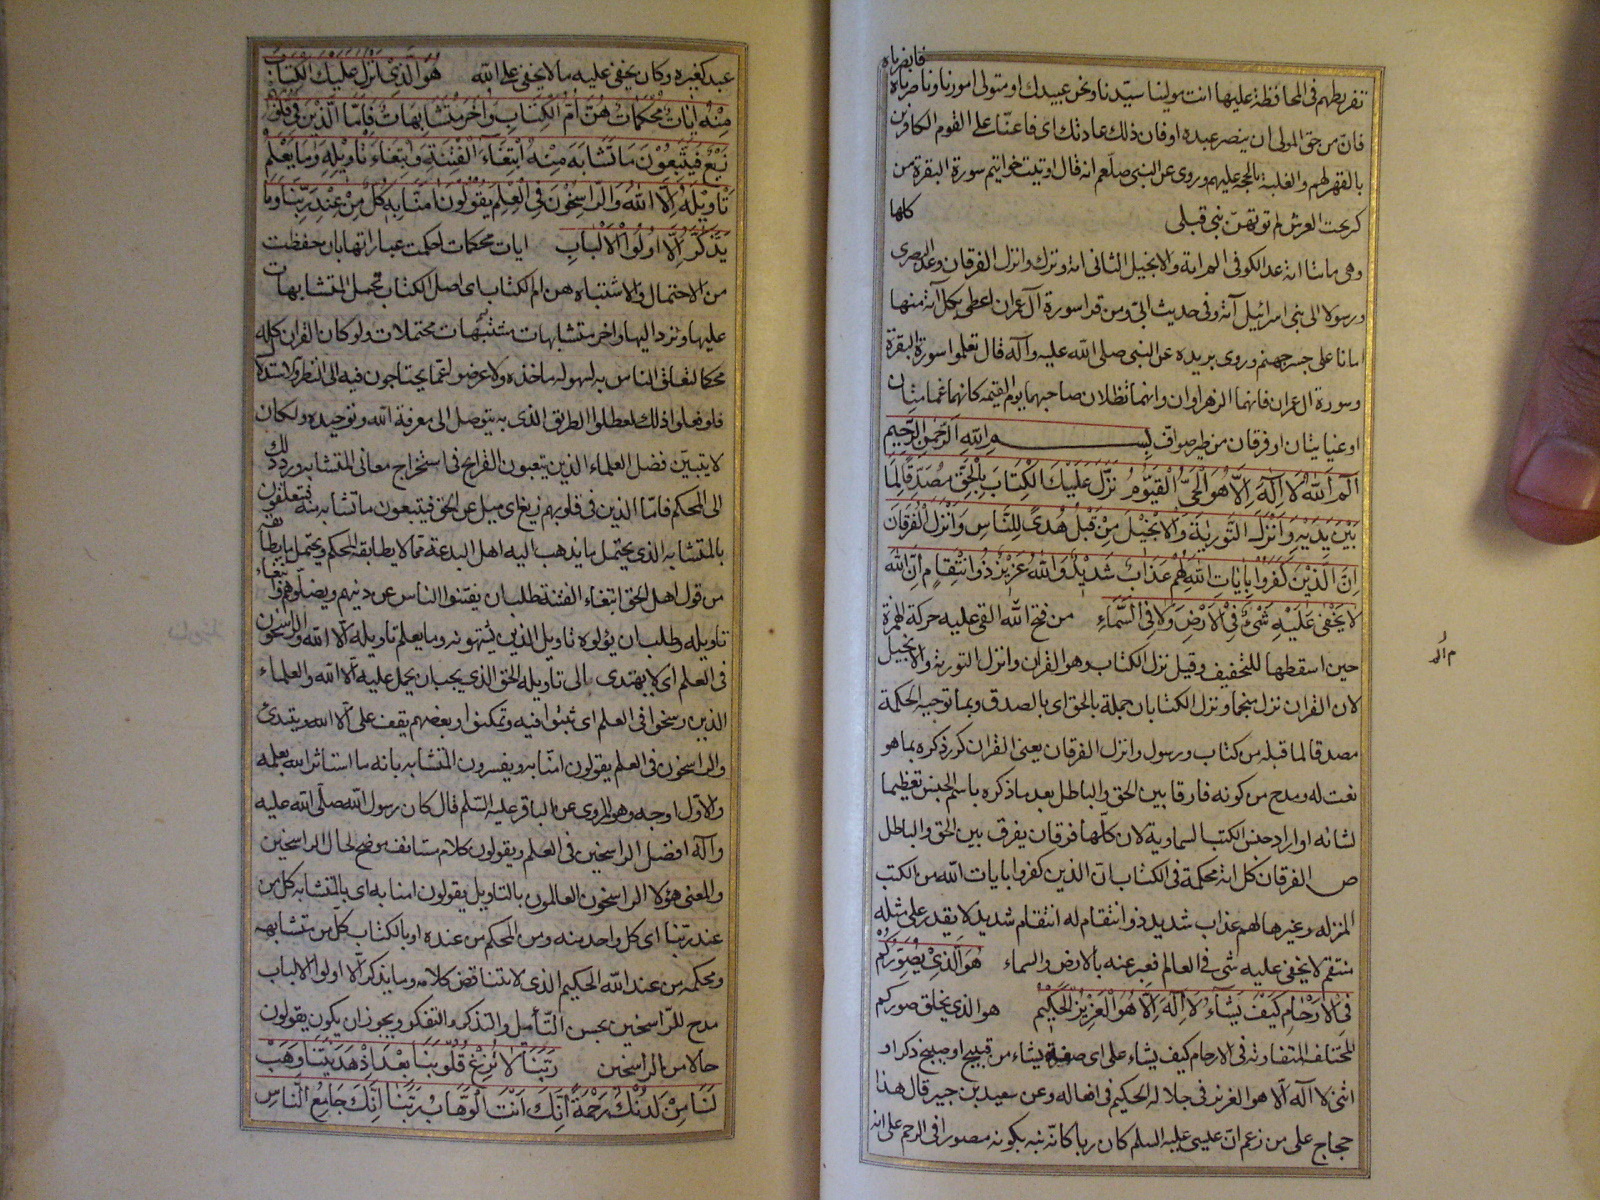 فانصرناه
تفريطهم فى المحافظة عليها انت مولينا سيّدنا ونحن عبيدك او متولى امورنا وناصرناه
فانّ من حق المولى ان ينصر عبيده او فان ذلك عادتك اى فاعنّا على القوم الكافرين
بالقهر لهم والغلبة بالحجة عليهم وروى عن النبى صلعم انه قال اوتيت خواتيم سورة البقرة من
كنز تحت العرش لم تؤتهن نبى قبلى كلها
وهى مائتا اية عد الكوفى الم اية والانجيل الثانى اية وترك وانزل الفرقان وعد البصرى
ورسولا الى بنى اسرائيل آية وفى حديث ابىّ ومن قرا سورة آل عمران اعطى بكل آية منها
امانا على جسر جهنم وروى بريده عن النبى صلى الله عليه وآله قال تعلموا سورة البقرة
وسورة ال عمران فانهما الزهراوان وانهما تظلان صاحبهما يوم القيمة كانهما غمامتان
او غيايتان او فرقان من طير صواف بسم الله الرّحمن الرّحيم
الم اَللّٰهُ لَا اِلٰهَ اِلَّا هُوَ الْحَىُّ الْقَيُّومُ نَزَّلَ عَلَيْكَ الْكِتَابَ بِالْحَقِّ مُصَدِّقًا لِمَا
بَيْنَ يَدَيْهِ وَاَنْزَلَ التَّوْرٰيةَ وَالْاِنْجِيلَ مِنْ قَبْلُ هُدًى لِلنَّاسِ وَاَنْزَلَ الْفُرْقَانَ
اِنَّ الَّذِينَ كَفَرُوا بِاٰيَاتِ اللّٰهِ لَهُمْ عَذَابٌ شَدِيدٌ وَاللّٰهُ عَزِيزٌ ذُو انْتِقَامٍ اِنَّ اللّٰهَ
لَا يَخْفٰى عَلَيْهِ شَىْءٌ فِى الْاَرْضِ وَلَا فِى السَّمَاءِ من فتح الم الله القى عليه حركة الهمزة
حين اسقطها للتخفيف وقيل نزل الكتاب وهو القران وانزل التورية والانجيل
لان القران نزل منجما ونزل الكتابان جملة بالحق اى بالصدق وبما توجبه الحكمة
مصدقا لما قبله من كتاب ورسول وانزل الفرقان يعنى القران كرر ذكره بما هو
نعت له ومدح من كونه فارقا بين الحق والباطل بعد ما ذكره باسم الجنس تعظيما
لشانه او اراد جنس الكتب السماوية لان كلّها فرقان يفرق بين الحق والباطل
ص الفرقان كل اية محكمة فى الكتاب ان الذين كفروا بايات الله من الكتب
المنزله وغيرها لهم عذاب شديد ذو انتقام له انتقام شديد لا يقدر على مثله
منتقم لا يخفى عليه شى فى العالم فعبر عنه بالارض والسماء هُوَ الَّذِى يُصَوِّرُكُمْ
فِى الْاَرْحَامِ كَيْفَ يَشَاءُ لَا اِلٰهَ اِلَّا هُوَ الْعَزِيزُ الْحَكِيمُ هو الذى يخلق صوركم
المختلفة المتفاوتة فى الارحام كيف يشاء على اى صفة يشاء من قبيح او صبيح ذكر او
انثى لا اله الّا هو العزيز فى جلاله الحكيم فى افعاله وعن سعيد بن جبير قال هذا
حجاج على من زعم انّ عيسى عليه السلم كان ربا كانه نبه بكونه مصورا فى الرحم على انه
عبد كغيره وكان يخفى عليه ما لا يخفى على الله هُوَ الَّذِى اَنْزَلَ عَلَيْكَ الْكِتَابَ
مِنْهُ اٰيَاتٌ مُحْكَمَاتٌ هُنَّ اُمُّ الْكِتَابِ وَاُخَرُ مُتَشَابِهَاتٌ فَاَمَّا الَّذِينَ فِى قُلُوبِهِمْ
زَيْغٌ فَيَتَّبِعُونَ مَا تَشَابَهَ مِنْهُ ابْتِغَاءَ الْفِتْنَةِ وَابْتِغَاءَ تَاْوِيلِهِ وَمَا يَعْلَمُ
تَاْوِيلَهُ اِلَّا اللّٰهُ وَالرَّاسِخُونَ فِى الْعِلْمِ يَقُولُونَ اٰمَنَّا بِهِ كُلٌّ مِنْ عِنْدِ رَبِّنَا وَمَا
يَذَّكَّرُ اِلَّا اُولُوا الْاَلْبَابِ ايات محكمات احكمت عباراتها بان حفظت
من الاحتمال والاشتباه هن ام الكتاب اى اصل الكتاب تحمل المتشابهات
عليها وترد اليها واخر متشابهات مشتبهات محتملات ولو كان القران كله
محكما لتعلق الناس به لسهولة ماخذه ولاعرضوا عمّا يحتاجون فيه الى النظر والاستدلا
فلو فعلوا ذلك لعطلوا الطريق الذى به يتوصل الى معرفة الله وتوحيده ولكان
لا يتبيّن فضل العلماء الذين يتعبون القرائح فى استخراج معانى المتشابه ورد ذلك
الى المحكم فامّا الذين فى قلوبهم زيغ اى ميل عن الحق فيتبعون ما تشابه منه فيتعلقون
بالمتشابه الذى يحتمل ما يذهب اليه اهل البدعة مما لا يطابقه المحكم ويحتمل ما يطابقه
من قول اهل الحق ابتغاء الفتنة طلب ان يفتنوا الناس عن دينهم ويضلّوهم وابتغاء
تاويله وطلب ان يؤلوه تاويل الذين يشتهونه وما يعلم تاويله الّا الله والراسخون
فى العلم اى لا يهتدى الى تاويله الحق الذى يجب ان يحمل عليه الّا الله والعلماء
الذين رسخوا فى العلم اى ثبتوا فيه وتمكنوا وبعضهم يقف على الّا الله ويبتدئ
والراسخون فى العلم يقولون امنّا به ويفسرون المتشابه بانه ما استاثر الله بعلمه
والاوّل اوجه وهو المروى عن الباقر عليه السّلم قال كان رسول الله صلّى الله عليه
وآله افضل الراسخين فى العلم ويقولون كلام مستانف موضح لحال الراسخين
والمعنى هؤلا الراسخون العالمون بالتاويل يقولون امنا به اى بالمتشابه كل من
عند ربّنا اى كل واحد منه ومن المحكم من عنده او بالكتاب كلّ من متشابهه
ومحكمه من عند الله الحكيم الذى لا يتناقض كلامه وما يذكر الّا اولوا الالباب
مدح للرّاسخين بحسن التّأمل والتذكر والتفكر ويجوز ان يكون يقولون
حالا من الراسخين رَبَّنَا لَا تُزِغْ قُلُوبَنَا بَعْدَ اِذْ هَدَيْتَنَا وَهَبْ
لَنَا مِنْ لَدُنْكَ رَحْمَةً اِنَّكَ اَنْتَ الْوَهَّابُ رَبَّنَا اِنَّكَ جَامِعُ النَّاسِ